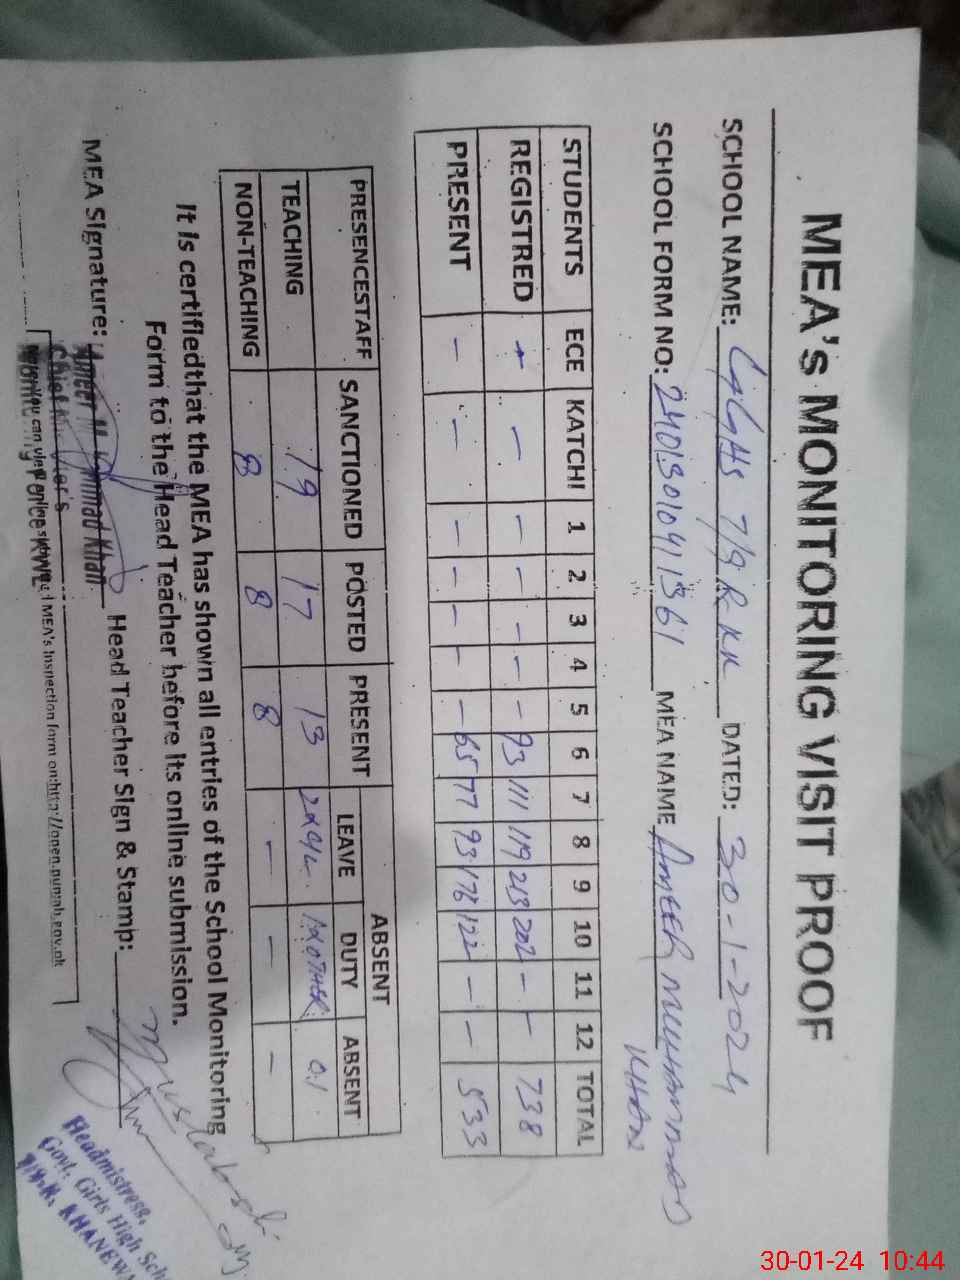 MEA's MONITORING VISIT PROOF
SCHOOL NAME: GGHS 7/9.R KWL DATED: 30-1-2024
SCHOOL FORM NO: MEA NAME AMEER MUHAMMAD
KHAN
STUDENTS ECE KATCHI 1 2 3 4 5 6 7 8 9 10 11 12 TOTAL
REGISTRED - - - - - - 93 111 119 213 202 - - 738
PRESENT - - - - - - - 65 77 93 176 122 - - 533
PRESENCESTAFF SANCTIONED POSTED PRESENT ABSENT
LEAVE DUTY ABSENT
TEACHING 19 17 13 01
NON-TEACHING 8 8 8 - - -
It is certifiedthat the MEA has shown all entries of the School Monitoring
Form to the Head Teacher before its online submission.
MEA Signature: Ameer Muhammad Khan Head Teacher Sign & Stamp:
You can view online submitted MEA's Inspection form on:http://open.punjab.gov.pk
Headmistress,
Govt. Girls High Sch
KHANEWA
30-01-24 10:44